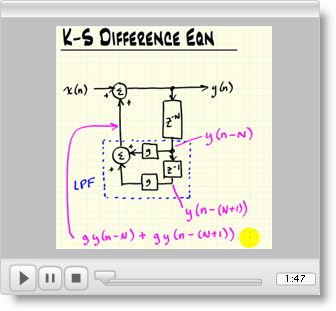 K-S DIFFERENCE EQN
x(n) + Σ y(n)
+
z⁻ᴺ
y(n-N)
+ Σ + g
+ z⁻¹
LPF g
y(n-(N+1))
gy(n-N) + gy(n-(N+1))
1:47